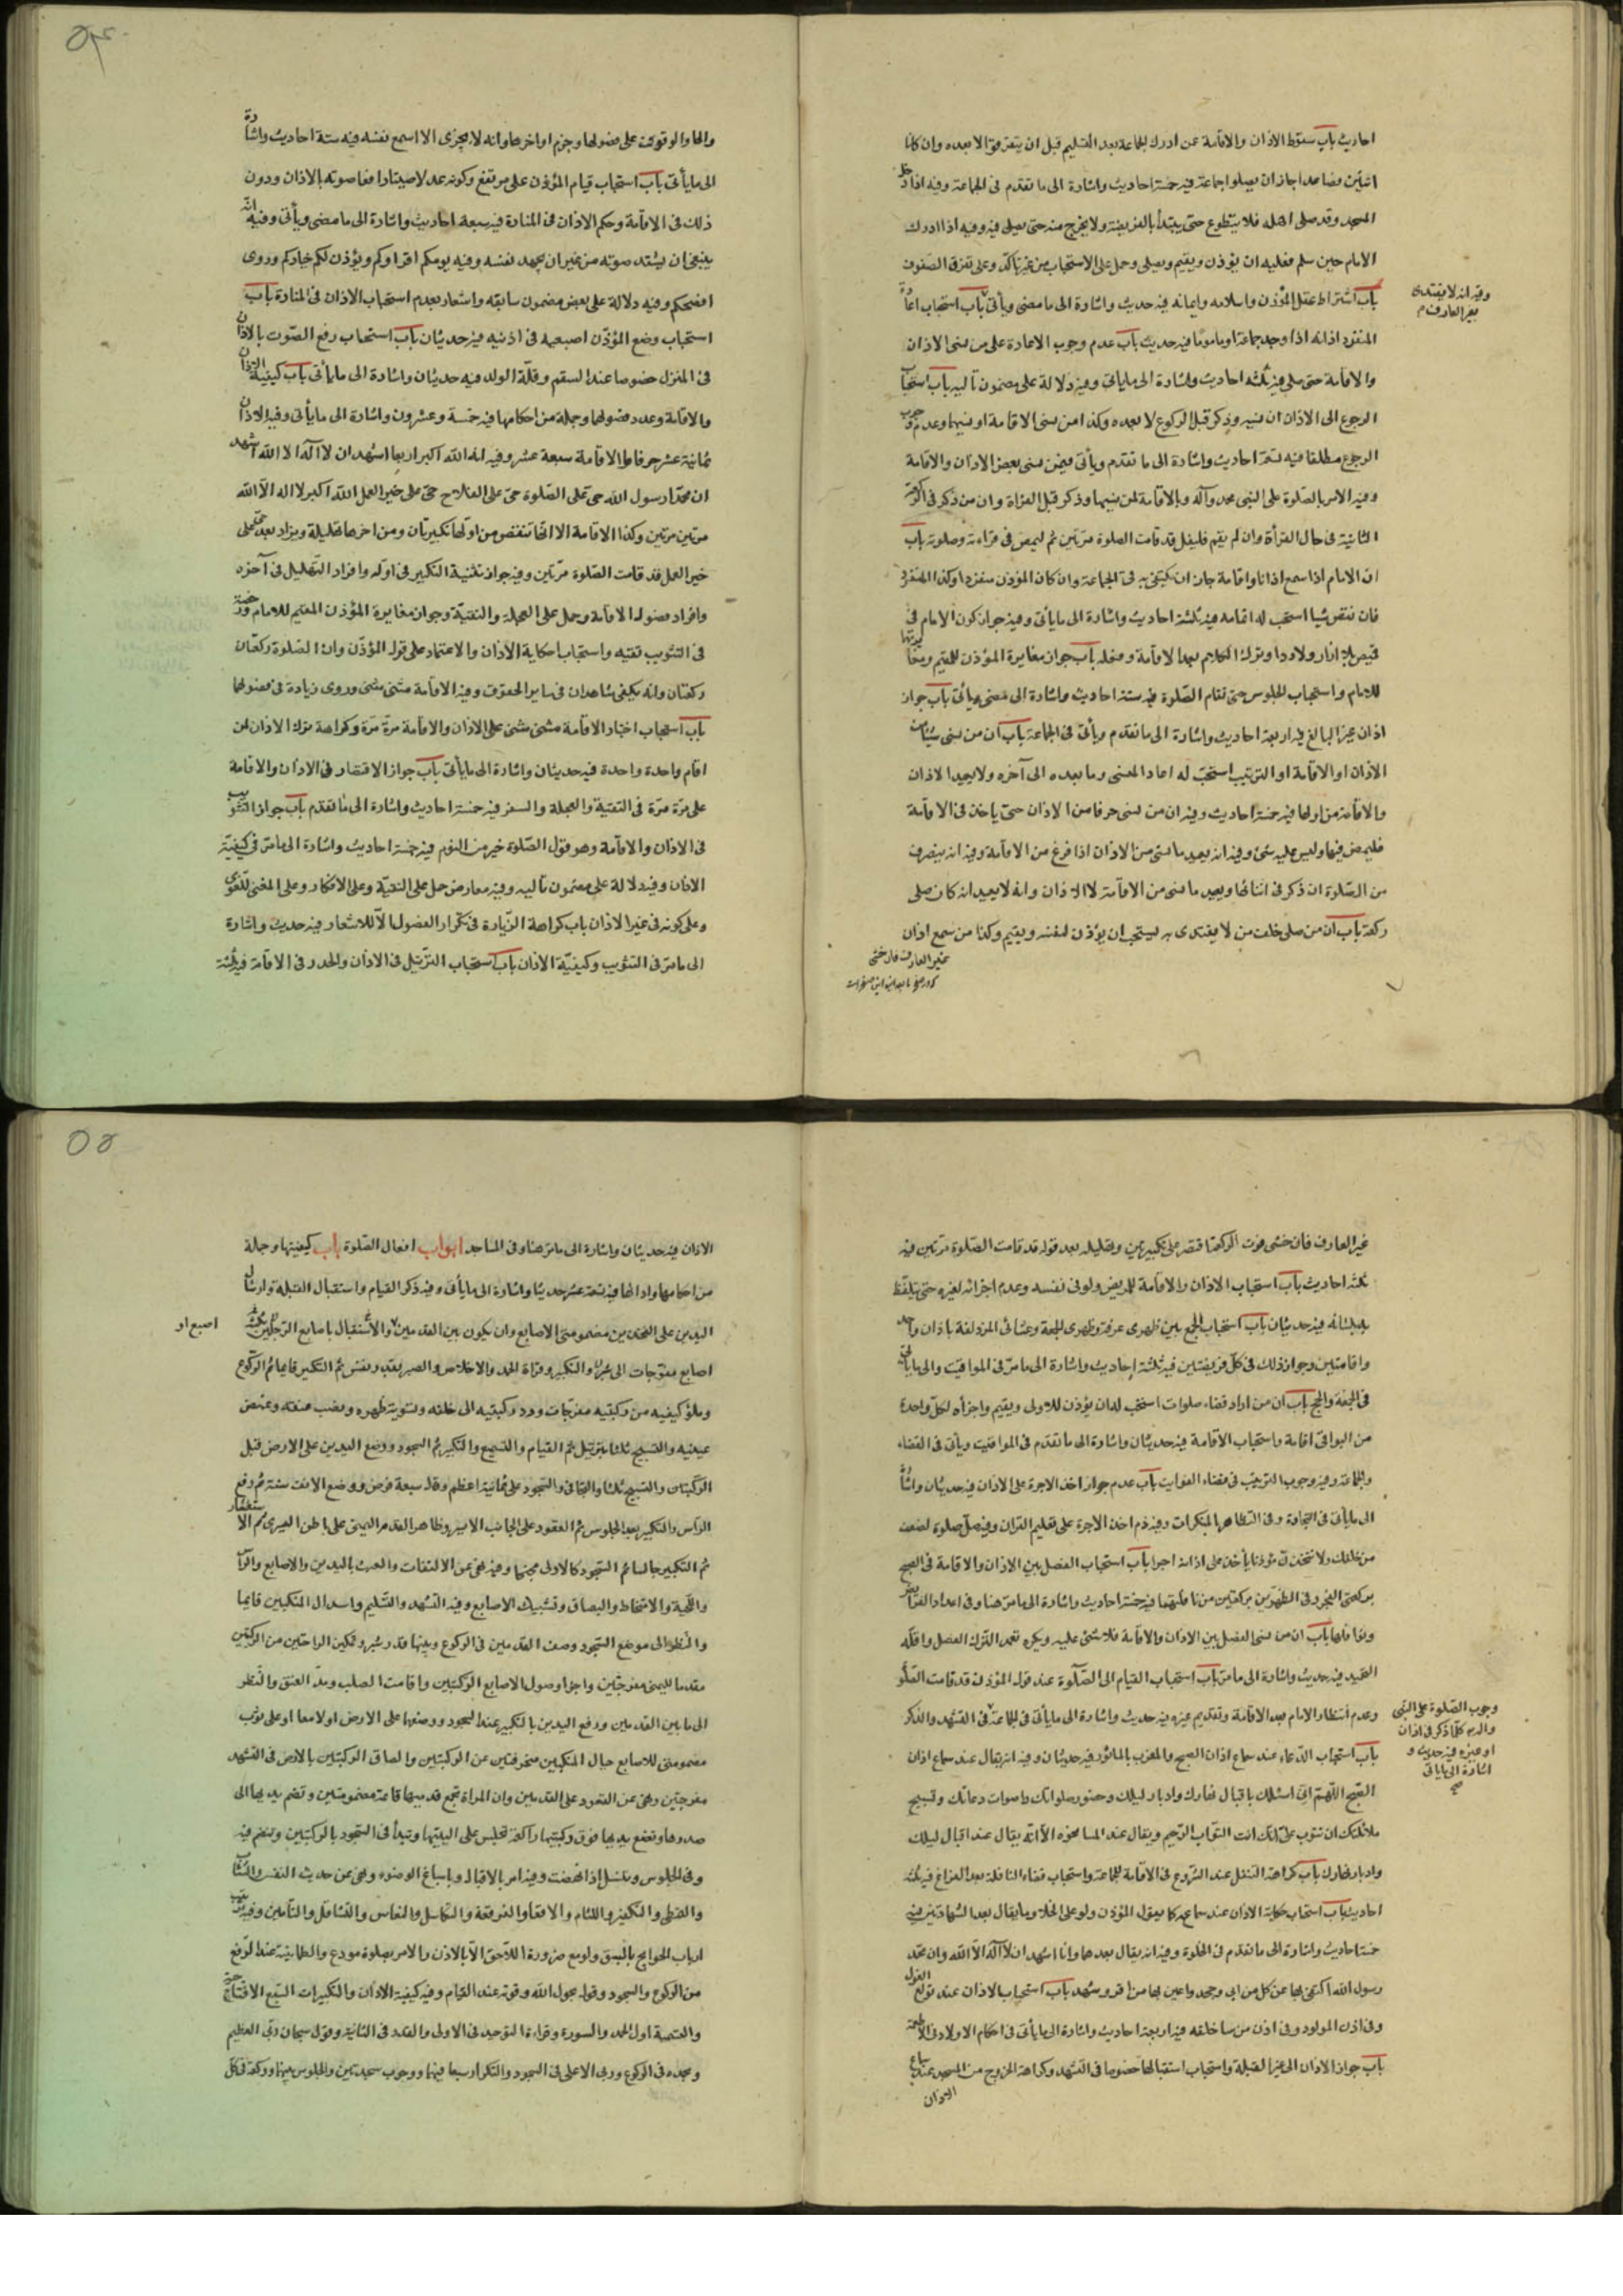 احاديث باب سقوط الاذان والاقامة عمن ادرك الجماعة بعد التسليم قبل ان يتفرقوا لا بعده وان كانا
اثنين فصاعدا جاز ان يصلوا جماعة فيه خمسة احاديث واشارة الى ما تقدم في الجماعة وفيه اذا دخل
المسجد وقد صلى اهله فلا يتطوع حتى يبتدأ بالفريضة ولا يخرج منه حتى يصلى فيه وفيه اذا ادرك
الامام حين سلم فعليه ان يؤذن ويقيم ويصلى وحمل على الاستحباب من غير تاكد وعلى تفرق الصفوف
باب اشتراط عقل المؤذن واسلامه وايمانه فيه حديث واشارة الى ما مضى ويأتى باب استحباب اعادة
وفيه انه لا يقتدى
بغير العارف م
المنفرد اذانه اذا وجد جماعة اوماموما فيه حديث باب عدم وجوب الاعادة على من نسى الاذان
والاقامة حتى صلى فيه ثلثه احاديث واشارة الى ماياتى وفيه دلالة على مضمون تاليه باب استحباب
الرجوع الى الاذان ان نسيه وذكر قبل الركوع لا بعده وكذا من نسى الاقامة او نسيهما وعدم وجوب
الرجوع مطلقا فيه تسعة احاديث واشارة الى ما تقدم ويأتى فيمن نسى بعض الاذان والاقامة
وفيه الامر بالصلوة على النبى محمد وآله وبالاقامة لمن نسيهما وذكر قبل القراة وان من ذكر في الركعة
الثانية فى حال القرأة وان لم يقم فليقل قد قامت الصلوة مرتين ثم ليمض فى قراءته وصلوته باب
ان الامام اذا سمع اذانا واقامة جاز ان يكتفى به فى الجماعة وان كان المؤذن منفردا وكذا المنفرد
فان نقص شيا استحب له اتمامه فيه ثلثة احاديث واشارة الى ماياتى وفيه جواز كون الامام فى
قميص بلا ازار ولا ردا وترك الكلام بعد الاقامة وفعله باب جواز مغايرة المؤذن للمقيم ومغايرتهما
للامام واستحباب الجلوس حتى تقام الصلوة فيه ستة احاديث واشارة الى مضى وياتى باب جواز
اذان غير البالغ فيه اربعة احاديث واشارة الى ما تقدم وياتى فى الجماعة باب ان من نسى شيئا من
الاذان او الاقامة او الترتيب استحب له اعاد المنسى وما بعده الى آخره ولا يعيد الاذان
والاقامة من اولها فيه خمسة احاديث وفيه ان من نسى حرفا من الاذان حتى ياخذ فى الاقامة
فليمض فيها وليس عليه شئ وفيه انه يعيد ما نسى من الاذان اذا فرغ من الاقامة وفيه انه ينصرف
من الصلوة ان ذكر فى اثنائها ويعيد ما نسى من الاقامة لا الاذان وانه لا يعيد انه كان صلى
ركعة باب ان من صلى خلف من لا يقتدى به يستحب ان يؤذن لنفسه ويقيم وكذا من سمع اذان
غير العارف فان خشى
والحا والوقوف على فصولها وجزم اواخرها وانه لا يجزى الا اسمع نفسه فيه ستة احاديث واشارة
الى ما يأتى باب استحباب قيام المؤذن على مرتفع وكونه عدلا صيتا رافعا صوته بالاذان ودون
ذلك فى الاقامة وحكم الاذان فى المنارة فيه سبعة احاديث واشارة الى ما مضى ويأتى وفيه انه
ينبغى ان يشتد صوته من غير ان يجهد نفسه وفيه يومكم اقراوكم ويؤذن لكم خياركم وروى
افصحكم وفيه دلالة على بعض مضمون سابقه واشعار بعدم استحباب الاذان فى المنارة باب
استحباب وضع المؤذن اصبعيه فى اذنيه فيه حديثان باب استحباب رفع الصوت بالاذان
فى المنزل خصوصا عند السقم وقلة الولد فيه حديثان واشارة الى ما يأتى باب كيفية الاذان
والاقامة وعدد فصولها وجملة من احكامها فيه خمسة وعشرون واشارة الى ما يأتى وفيه الاذان
ثمانية عشر حرفا والاقامة سبعة عشر وفيه انه الله اكبر اربعا اشهد ان لا اله الا الله اشهد
ان محمدا رسول الله حى على الصلوة حى على الفلاح حى على خير العمل الله اكبر لا اله الا الله
مرتين مرتين وكذا الاقامة الا انها تنقص من اولها تكبيرتان ومن اخرها تهليلة ويزاد بعد حى على
خير العمل قد قامت الصلوة مرتين وفيه جواز تثنية التكبير فى اوله وافراد التهليل فى آخره
وافراد فصول الاقامة وحمل على العجلة والتقية وجواز مغايرة المؤذن المقيم للامام ورخصة
فى التثويب تقيه واستحباب حكاية الاذان والاعتماد على قول المؤذن وان الصلوة ركعتان
ركعتان وانه يكفى شاهدان فى ساير الحقوق وفيه الاقامة مثنى مثنى وروى زيادة فى فصولها
باب استحباب اختيار الاقامة مثنى مثنى على الاذان والاقامة مرة مرة وكراهة ترك الاذان لمن
اقام واحدة واحدة فيه حديثان واشارة الى ماياتى باب جواز الاقتصار فى الاذان والاقامة
على مرة مرة فى التقية والعجلة والسفر فيه خمسة احاديث واشارة الى ما تقدم باب جواز التثويب
فى الاذان والاقامة وهو قول الصلوة خير من النوم فيه خمسة احاديث واشارة الى مامر فى كيفية
الاذان وفيه دلالة على مضمون تاليه وفيه معارض حمل على التقية وعلى الانكار وعلى المعنى اللغوى
وعلى كونه فى غير الاذان باب كراهة الزيادة فى تكرار الفصول الا للاشعار فيه حديث واشارة
الى مامر فى التثويب وكيفية الاذان باب استحباب الترتيل فى الاذان والحدر فى الاقامة فيه ثلثة
غير العارف فان خشى فوت الركعة اقتصر على تكبيرتين وتهليله بعد قوله قد قامت الصلوة مرتين فيه
ثلثه احاديث باب استحباب الاذان والاقامة للمريض ولو فى نفسه وعدم اجزائه لغيره حتى يتلفظ
بلسانه فيه حديثان باب استحباب الجمع بين ظهرى عرفة وظهرى الجمعة وعشائى المزدلفة باذان واحد
واقامتين وجواز ذلك فى كل فريضتين فيه ثلثة احاديث واشارة الى مامر فى المواقيت والى ماياتى
فى الجمعة والحج باب ان من اراد قضاء صلوات استحب له ان يؤذن للاولى ويقيم واجزأه لكل واحدة
من البواقى اقامة واستحباب الاقامة فيه حديثان واشارة الى ما تقدم فى المواقيت ويأتى فى القضاء
والجماعة وفيه وجوب الترتيب فى قضاء الفوايت باب عدم جواز اخذ الاجرة على الاذان فيه حديثان واشارة
الى ماياتى فى التجارة وفى التظاهر بالمنكرات وفيه ذم اخذ الاجرة على تعليم القران وفيه صل صلوة اضعف
من خلفك ولا تتخذن مؤذنا يأخذ على اذانه اجرا باب استحباب الفصل بين الاذان والاقامة فى الصبح
بركعتى الفجر وفى الظهرين بركعتين من نافلتهما فيه خمسة احاديث واشارة الى مامر هنا وفى اعداد الفرائض
ونوافلها باب ان من نسى الفصل بين الاذان والاقامة فلا شئ عليه ويكره تعمد الترك الفصل واقله
التحميد فيه حديث واشارة الى مامر باب استحباب القيام الى الصلوة عند قول المؤذن قد قامت الصلو
وعدم انتظار الامام بعد الاقامة وتقديم غيره فيه حديث واشارة الى ماياتى فى الجماعة فى التشهد والذكر
وجوب الصلوة على النبى
واله كلما ذكر فى اذان
او غيره فيه حديث و
اشارة الى ماياتى
صح
باب استحباب الدعاء عند سماع اذان الصبح والمغرب بالماثور فيه حديثان وفيه انه يقال عند سماع اذان
الصبح اللهم انى اسئلك باقبال نهارك وادبار ليلك وحضور صلواتك واصوات دعاتك وتسبيح
ملائكتك ان تتوب على انك انت التواب الرحيم ويقال عند المسا نحوه الا انه يقال عند اقبال ليلك
وادبار نهارك باب كراهة التنفل عند الشروع فى الاقامة للجماعة واستحباب قضاء النافلة بعد الفراغ فيه ثلثة
احاديث باب استحباب حكاية الاذان عند سماعه كما يقول المؤذن ولو على الخلا وما يقال بعد الشهادتين فيه
خمسة احاديث واشارة الى ما تقدم فى الخلوة وفيه انه يقال بعدهما وانا اشهد ان لا اله الا الله وان محمد
رسول الله اكتفى بها عن كل من ابى وجحد واعين بها من اقر وشهد باب استحباب الاذان عند تولع الغول
وفى اذن المولود وفى اذن من سا خلقه فيه اربعة احاديث واشارة الى ماياتى فى احكام الاولاد فى الاطعمة
باب جواز الاذان الى غير القبلة واستحباب استقبالها خصوصا فى التشهد وكراهة الخروج من المسجد عند سماع
الاذان
الاذان فيه حديثان واشارة الى مامر هنا وفى المساجد ابواب افعال الصلوة باب كيفيتها وجملة
من احكامها وادابها فيه تسعة عشر حديثا واشارة الى ماياتى وفيه ذكر القيام واستقبال القبلة وارسال
اليدين على الفخذين مضمومتى الاصابع وان يكون بين القدمين والاستقبال باصابع الرجلين
اصبع او
اصابع مفرجات الى شبر والتكبير وقراة الحمد والاخلاص والصبر بقدر نفس ثم التكبير قايما ثم الركوع
وملؤ كفيه من ركبتيه مفرجات ورد ركبتيه الى خلفه وتسوية ظهره ونصب عنقه وتغميض
عينيه والتسبيح ثلثا بترتيل ثم القيام والتسميع والتكبير ثم السجود ووضع اليدين على الارض قبل
الركبتان والتسبيح ثلثا والتجافى والسجود على ثمانية اعظم وقال سبعة فرض ووضع الانف سنة ثم رفع
الرأس والتكبير بعد الجلوس ثم القعود على الجانب الايسر وظاهر القدم اليمنى على باطن اليسرى ثم الاستغفار
ثم التكبير جالسا ثم السجود كالاولى وفيه نهى عن الالتفات والعبث باليدين والاصابع والرأس
واللحية والامتخاط والبصاق وتشبيك الاصابع وفيه التشهد والتسليم واسدال المنكبين قايما
والنظر الى موضع السجود وصف القدمين فى الركوع وبينها قدر شبر وتمكين الراحتين من الركبتين
مقدما لليمنى مفرجتين واجزا وصول الاصابع الركبتين واقامت الصلب ومد العنق والنظر
الى مابين القدمين ورفع اليدين بالتكبير عند السجود ووضعها على الارض اولا معا او على ثوب
مضمومتى الاصابع حيال المنكبين منحرفتين عن الركبتين والصاق الركبتين بالارض فى التشهد
مفرجتين ونهى عن القعود على القدمين وان المراة تجمع قدميها قائمة مضمومتين وتضم يديها الى
صدرها وتضع يديها فوق ركبتيها راكعة تجلس على اليتيها وتبدأ فى السجود بالركبتين وتنضم فيه
وفى الجلوس وتنسل اذا نهضت وفيه امر بالاقبال وباسباغ الوضوء ونهى عن حديث النفس والتثاب
والتمطى والتكفير واللثام والاقعا والفرقعة والتكاسل والنعاس والتثاقل والتأمين وفيه
ارباب الحوايج بالسبق ولو مع ضرورة اللاحق الا بالاذن والامر بصلوة مودع والطمانينة عند الرفع
من الركوع والسجود وقول بحول الله وقوته عند القيام وفيه كيفية الاذان والتكبيرات السبع الافتتاحية
والتسمية اول الحمد والسورة وقراءة التوحيد فى الاولى والقدر فى الثانية وقول سبحان ربى العظيم
وبحمده فى الركوع وربى الاعلى فى السجود والتكرار سبعا فيهما ووجوب سجدتين والجلوس بينهما وركعة فى كل